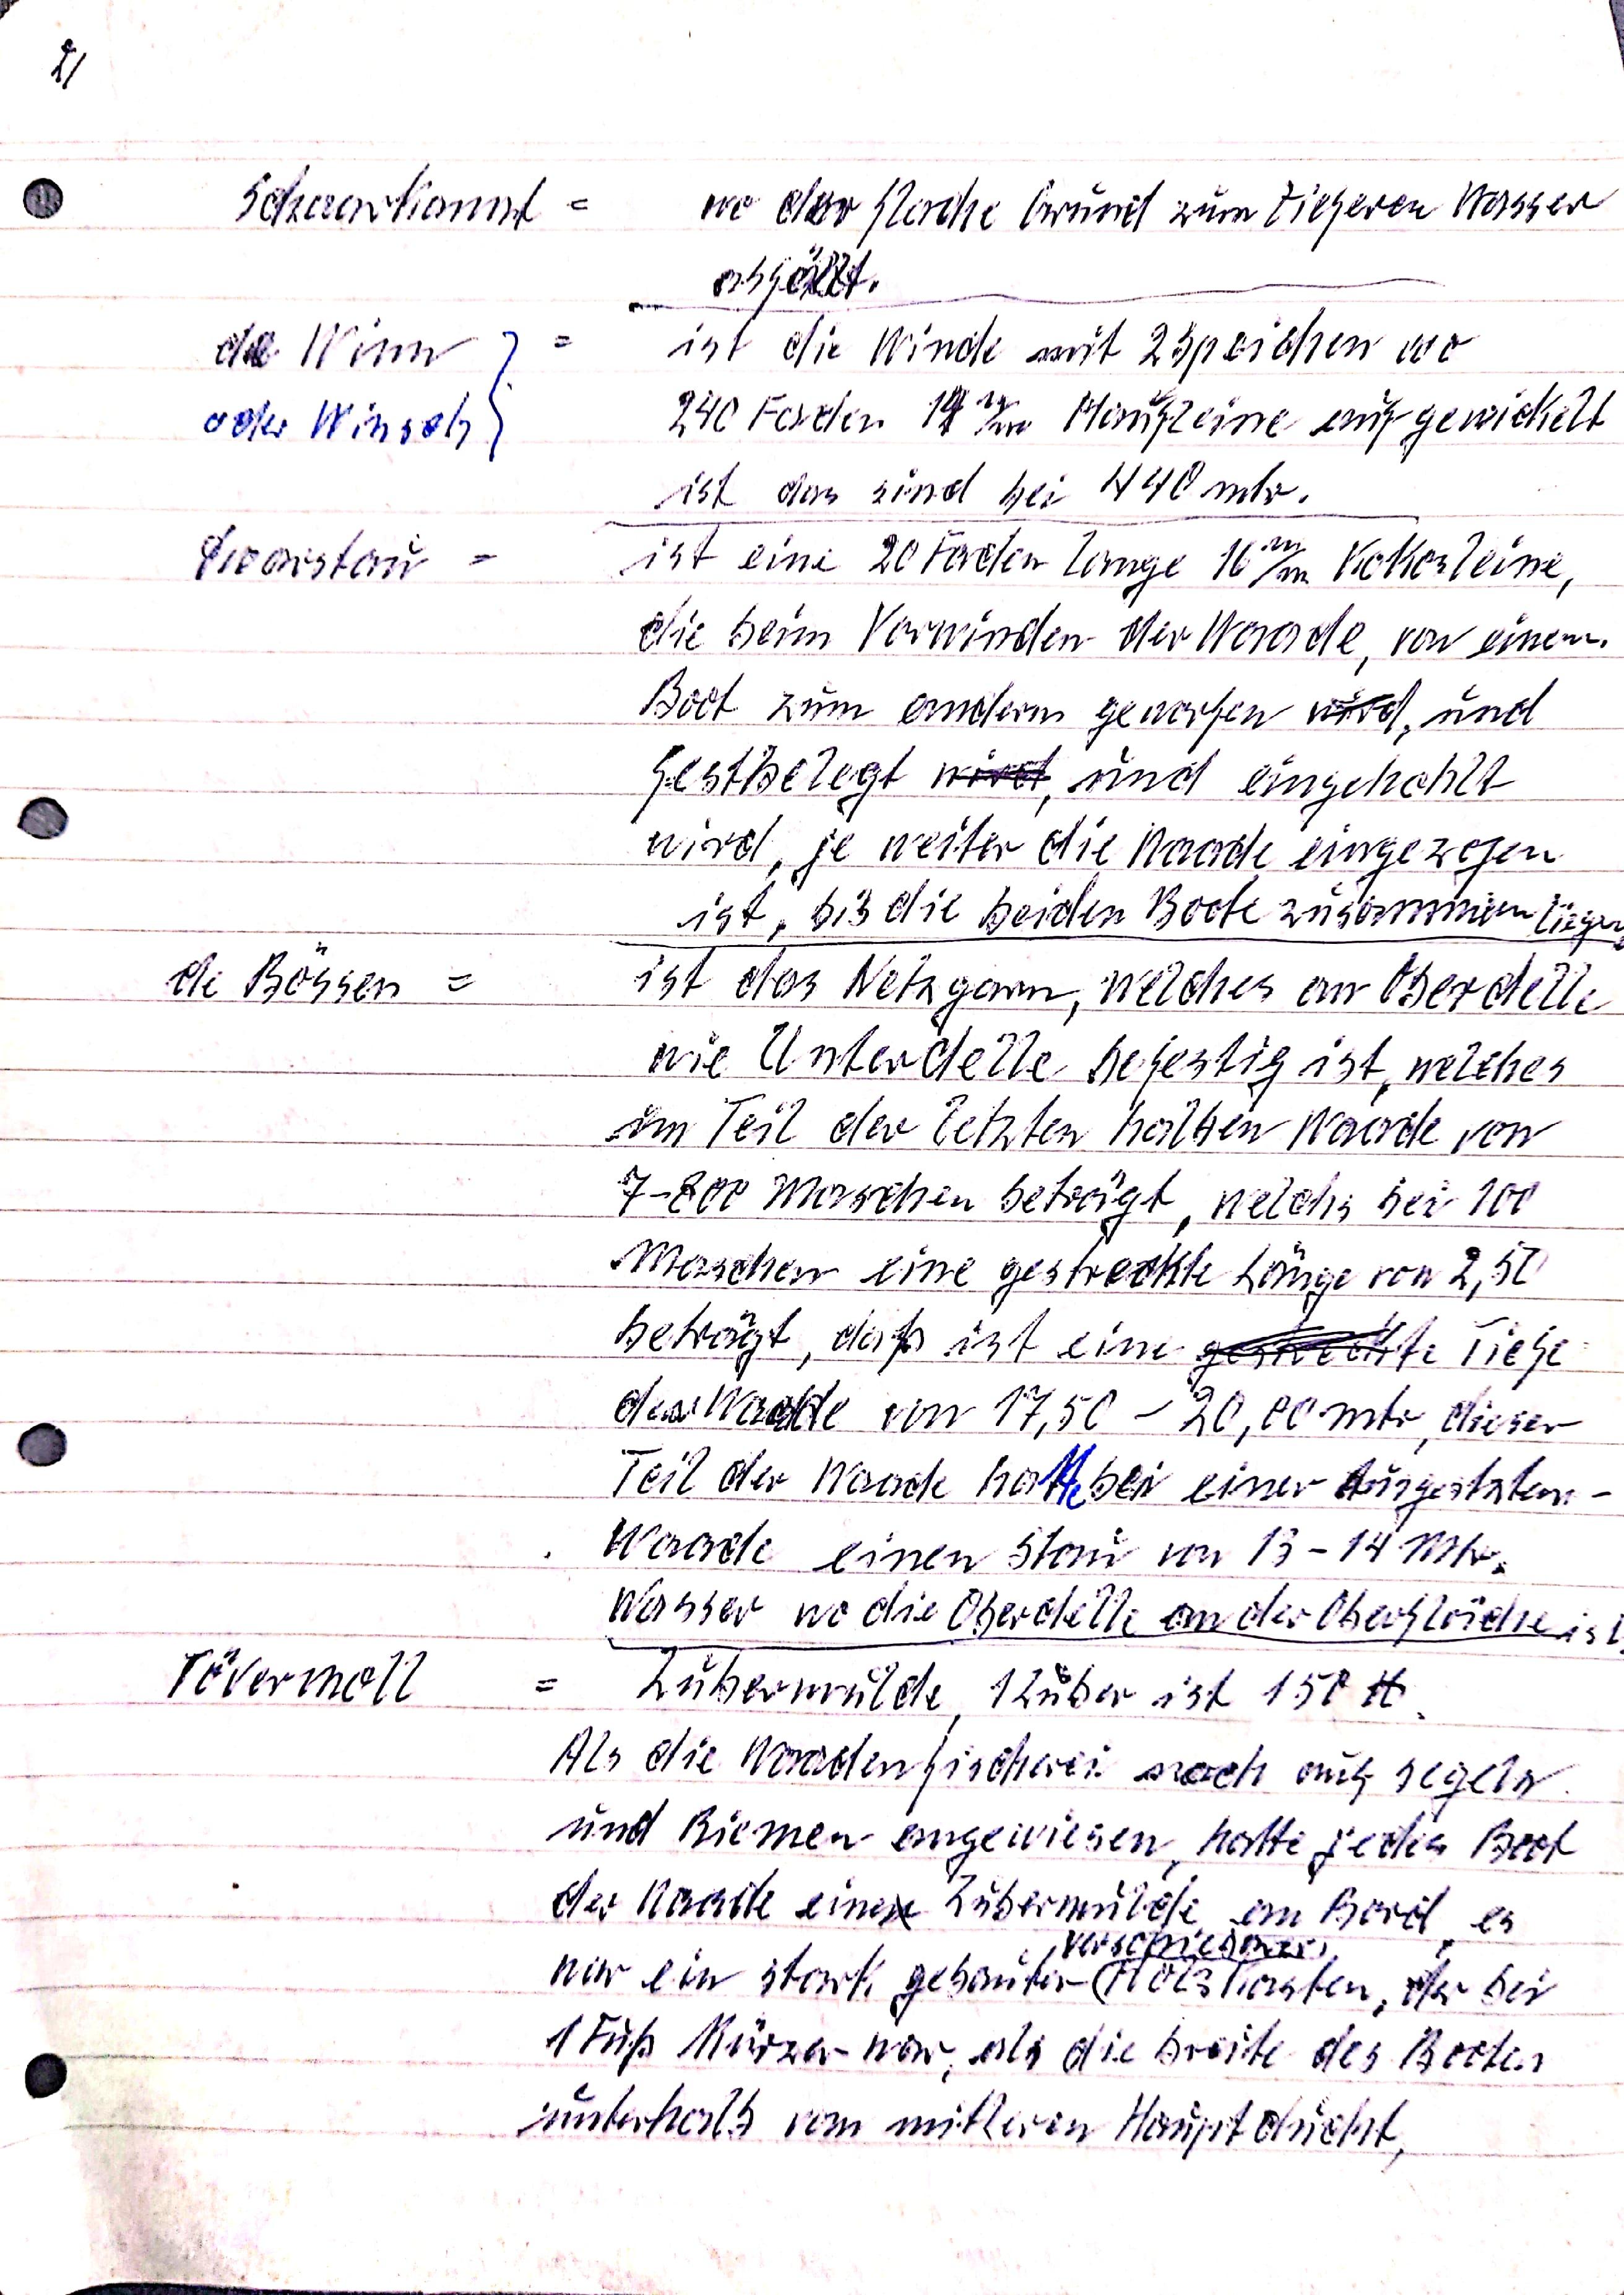 2/
Schaarkannt = wo der flache Grund zum tieferen Wasser
abfällt.
de Winn } = ist die Winde mit 2 Speichen wo
oder Winsch 240 Faden 14 m/m Hanfleine aufgewickelt
ist das sind bei 440 mtr.
Dwarstau = ist eine 20 Faden lange 16 m/m Kokosleine,
die beim Vorwinden der Waade, von einem
Boot zum andern geworfen wird, und
festbelegt wird, und eingehohlt
wird, je weiter die Waade eingezogen
ist, bis die beiden Boote zusammen liegen
de Bössen = ist das Netzgarn, welches an Oberdelle
wie Unterdelle befestig ist, welches
im Teil der letzten halben Waade von
7-800 Maschen beträgt, welchs bei 100
Maschen eine gestreckte Länge von 2,50
beträgt, daß ist eine gestreckte Tiefe
der Waade von 17,50 - 20,00 mtr, dieser
Teil der Waade hatte bei einer
Waade einen Stau von 13-14 Mtr.
Wasser wo die Oberdelle an der Oberfläche ist
Tövermoll = Zubermulde, 1 Zuber ist 150 ℔.
Als die Waadenfischerei noch auf segeln
und Riemen angewiesen, hatte jedes Boot
der Waade eine Zubermulde an Bord, es
verschiebbarer
war ein stark gebauter Holzkasten, der bei
1 Fuß kürzer war, als die breite des Bootes
unterhalb vom mittleren Hauptducht,